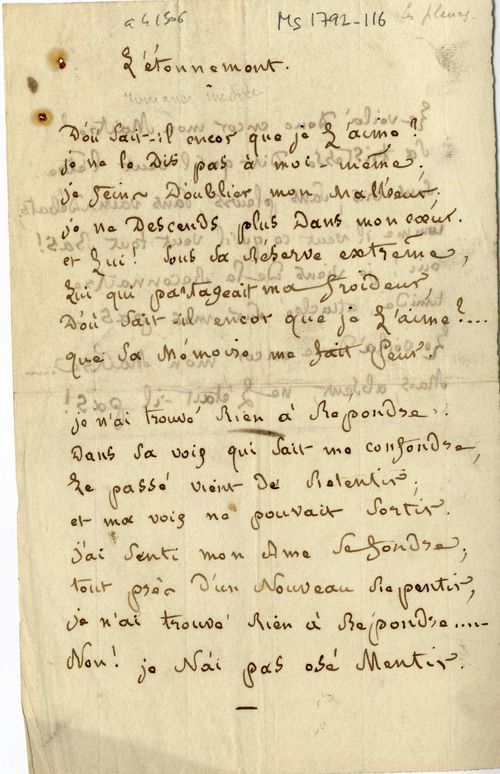 a 41506
Ms 1792-116
Les pleurs.
L'étonnement.
romance inédite
D'où sait-il encor que je L'aime?
je ne le Dis pas à moi-même.
je feins D'oublier mon Malheur.
je ne Descends plus Dans mon cœur.
et Lui! sous sa Réserve extrême,
Lui qui partageait ma froideur,
D'où sait-il encor que je L'aime?....
que sa Mémoire me fait Peur!
je n'ai trouvé Rien à Répondre.
Dans sa voix qui sait me confondre,
Le passé vient De Retentir;
et ma voix ne pouvait sortir.
j'ai senti mon Ame se fondre,
tout près D'un Nouveau Repentir,
je n'ai trouvé Rien à Répondre.....
Non! je N'ai pas osé Mentir.